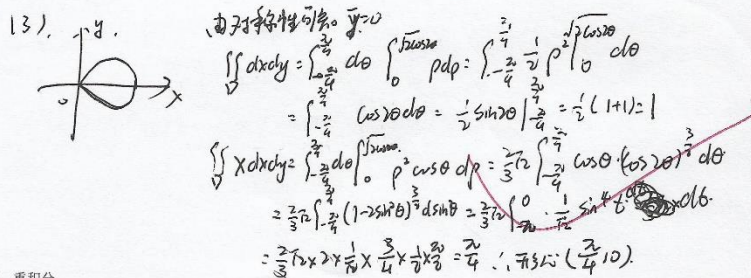 (3).
y.
x
0
由对称性可得。ȳ=0
∬_D dxdy = ∫_{-π/4}^{π/4} dθ ∫_0^{√2cos2θ} ρdρ = ∫_{-π/4}^{π/4} 1/2 ρ² |_0^{√2cos2θ} dθ
= ∫_{-π/4}^{π/4} cos2θdθ = 1/2 sin2θ |_{-π/4}^{π/4} = 1/2 (1+1) = 1
∬_D xdxdy = ∫_{-π/4}^{π/4} dθ ∫_0^{√2cos2θ} ρ² cosθ dρ = 2/3 √2 ∫_{-π/4}^{π/4} cosθ·(cos2θ)^{3/2} dθ
= 2/3 √2 ∫_{-π/4}^{π/4} (1-2sin²θ)^{3/2} dsinθ = 2/3 √2 ∫ · 1/√2 sin⁴t dt.
= 2/3 √2 × 2 × 1/√2 × 3/4 × 1/2 × π/2 = π/4 ∴ 形心 (π/4, 0).
重积分